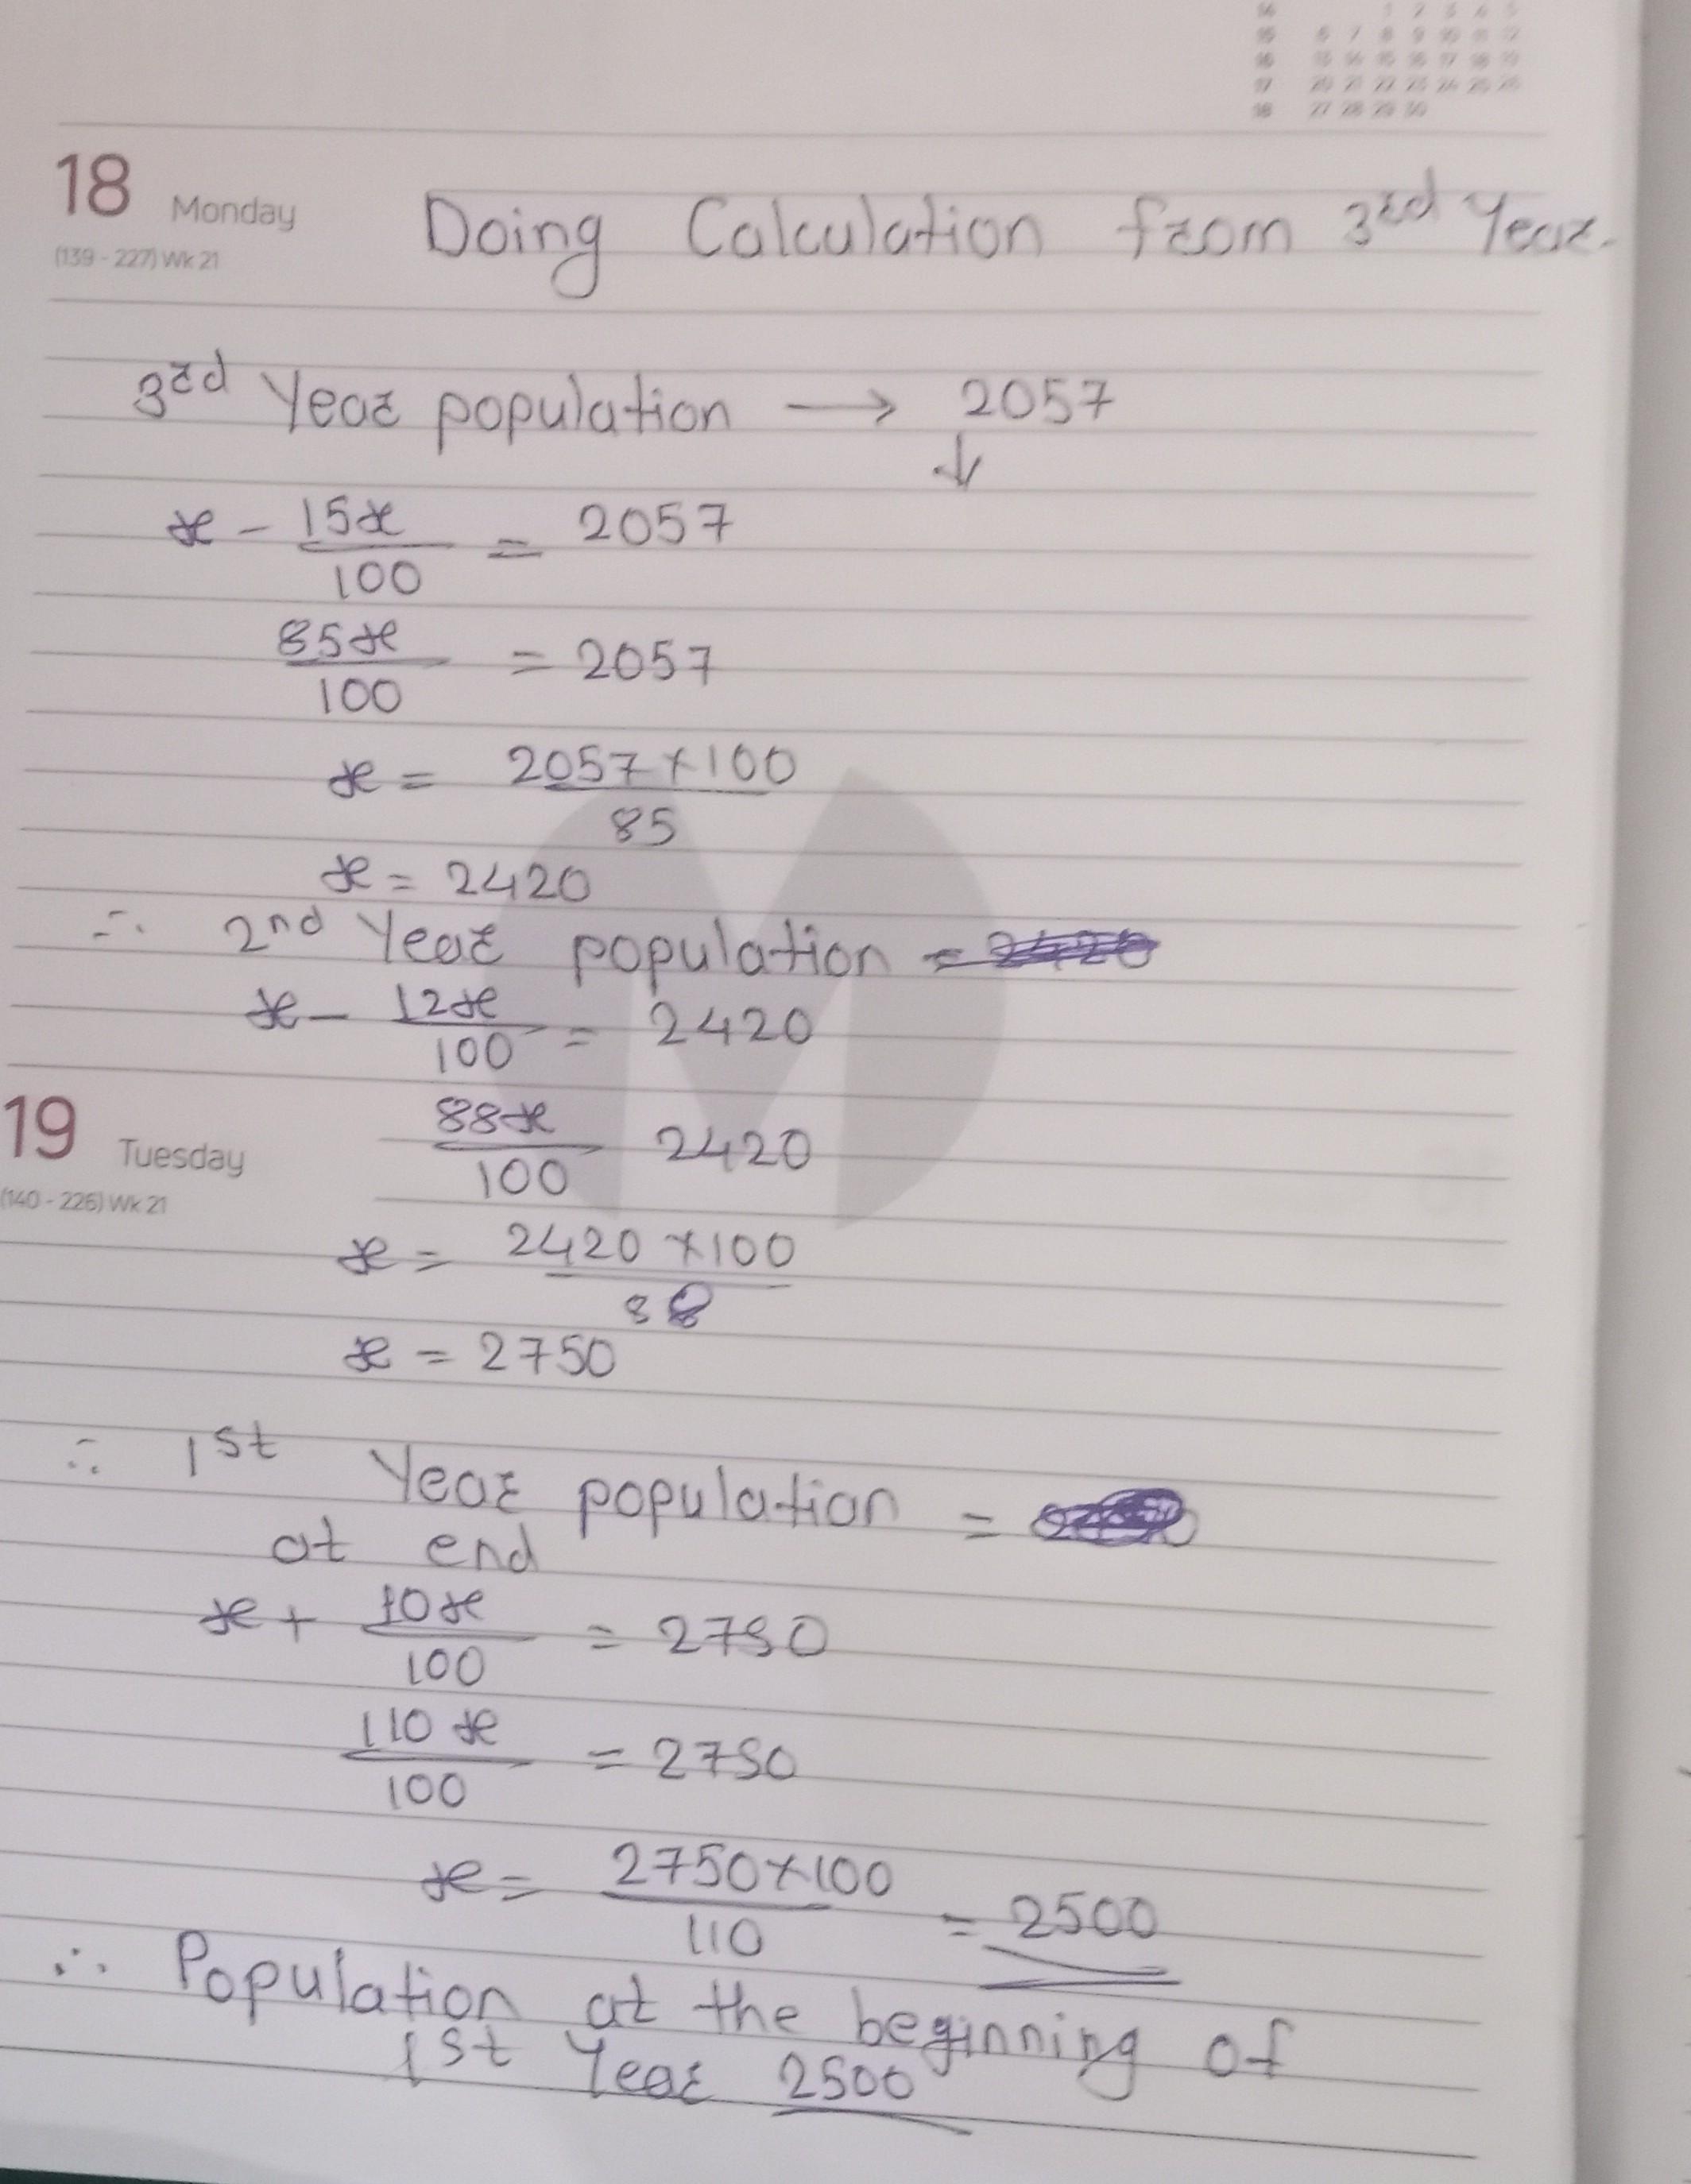 14 1 2 3 4 5
15 6 7 8 9 10 11 12
16 13 14 15 16 17 18 19
17 20 21 22 23 24 25 26
18 27 28 29 30
18 Monday
(139 - 227) Wk 21
Doing Calculation from 3rd Year.
3rd Year population → 2057
↓
x - 15x/100 = 2057
85x/100 = 2057
x = 2057 × 100/85
x = 2420
∴ 2nd Year population =
x - 12x/100 = 2420
19 Tuesday
(140 - 226) Wk 21
88x/100 2420
x = 2420 × 100/88
x = 2750
∴ 1st Year population =
at end
x + 10x/100 = 2750
110x/100 = 2750
x = 2750 × 100/110 = 2500
∴ Population at the beginning of
1st Year 2500